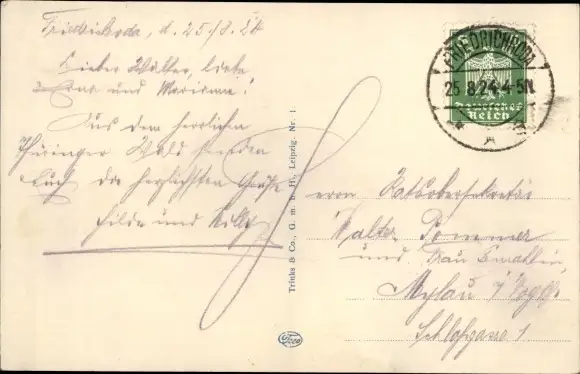 Friedrichroda, d. 25./8.24
Lieber Walter, liebe
und Marianne!
Aus dem herrlichen
Thüringer Wald senden
Euch die herzlichsten Grüße
Hilde und Willy
Trinks & Co., G. m. b. H., Leipzig. Nr. 1
Trico
FRIEDRICHRODA
25.8.24.4-5N.
Deutsches
Reich
Herrn Ratsobersekretär
Walter Pommer
und Frau Gemahlin
Mylau i/Vogtl.
Schloßgasse 1